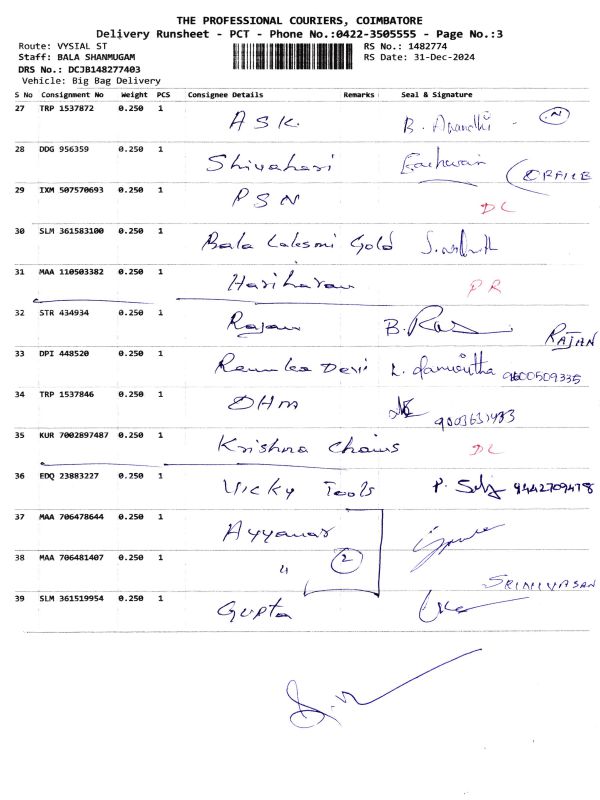 THE PROFESSIONAL COURIERS, COIMBATORE
Delivery Runsheet - PCT - Phone No.:0422-3505555 - Page No.:3
Route: VYSIAL ST RS No.: 1482774
Staff: BALA SHANMUGAM RS Date: 31-Dec-2024
DRS No.: DCJB148277403
Vehicle: Big Bag Delivery
S No Consignment No Weight PCS Consignee Details Remarks Seal & Signature
27 TRP 1537872 0.250 1 ASK B. Anandhi .N
28 DDG 956359 0.250 1 Shivahari OFFICE
29 IXM 507570693 0.250 1 PSN DC
30 SLM 361583100 0.250 1 Bala Laksmi Gold
31 MAA 110503382 0.250 1 Hariharan PR
32 STR 434934 0.250 1 Rajan RAJAN
33 DPI 448520 0.250 1 Devi 9600509335
34 TRP 1537846 0.250 1 OHM
35 KUR 7002897487 0.250 1 Krishna Chains DC
36 EDQ 23883227 0.250 1 Vicky Tools 9442709478
37 MAA 706478644 0.250 1 Ayyanar
38 MAA 706481407 0.250 1 " 2 SRINIVASAN
39 SLM 361519954 0.250 1 Gupta